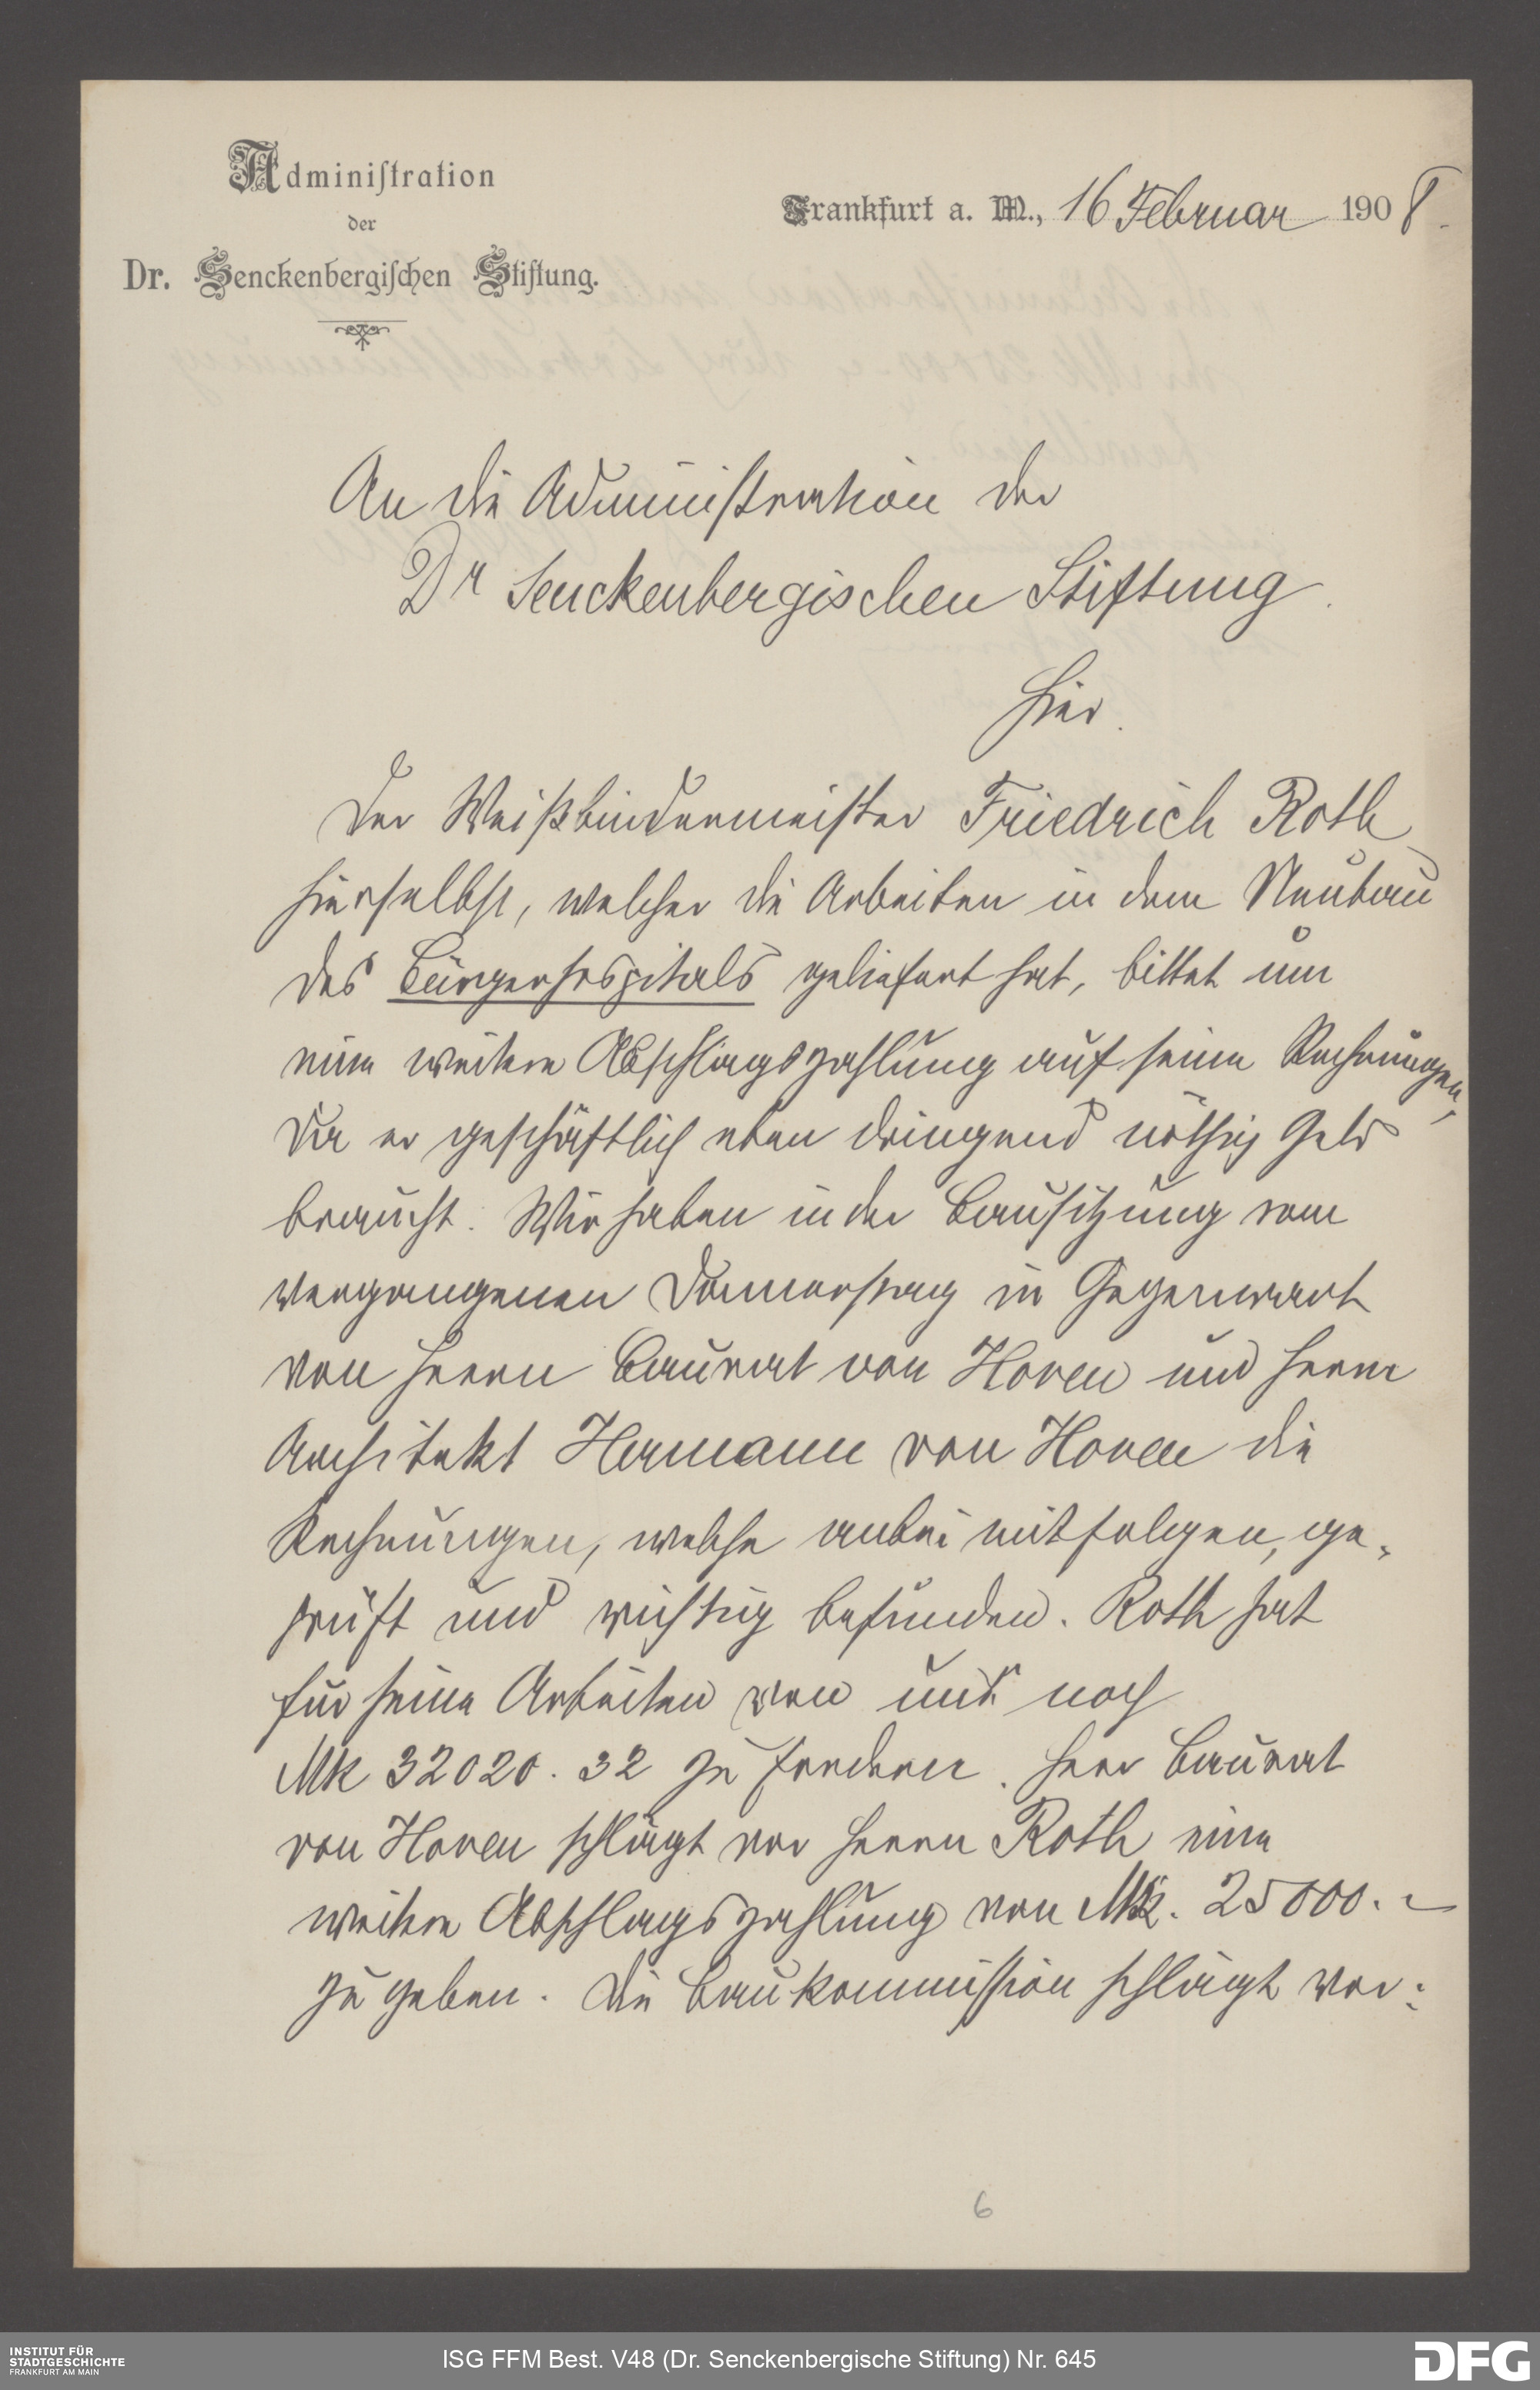 Administration
der
Dr. Senckenbergischen Stiftung.
Frankfurt a. M., 16 Februar 1908.
An die Administration der
Dr Senckenbergischen Stiftung.
Hier.
Der Weißbindermeister Friedrich Roth
hierselbst, welcher die Arbeiten in dem Neubau
des Bürgerhospitals geliefert hat, bittet um
eine weitere Abschlagszahlung auf seine Rechnungen,
da er geschäftlich eben dringend nöthig Geld
braucht. Wir haben in der Bausitzung vom
vergangenen Donnerstag in Gegenwart
von Herrn Baurat von Hoven und Herrn
Architekt Hermann von Hoven die
Rechnungen, welche anbei mitfolgen, ge-
prüft und richtig befunden. Roth hat
für seine Arbeiten von uns noch
Mk 32020.32 zu fordern. Herr Baurat
von Hoven schlägt vor Herrn Roth eine
weitere Abschlagszahlung von Mk. 25000.-
zu geben. Die Baukommission schlägt vor:
6
INSTITUT FÜR
STADTGESCHICHTE
FRANKFURT AM MAIN
ISG FFM Best. V48 (Dr. Senckenbergische Stiftung) Nr. 645
DFG